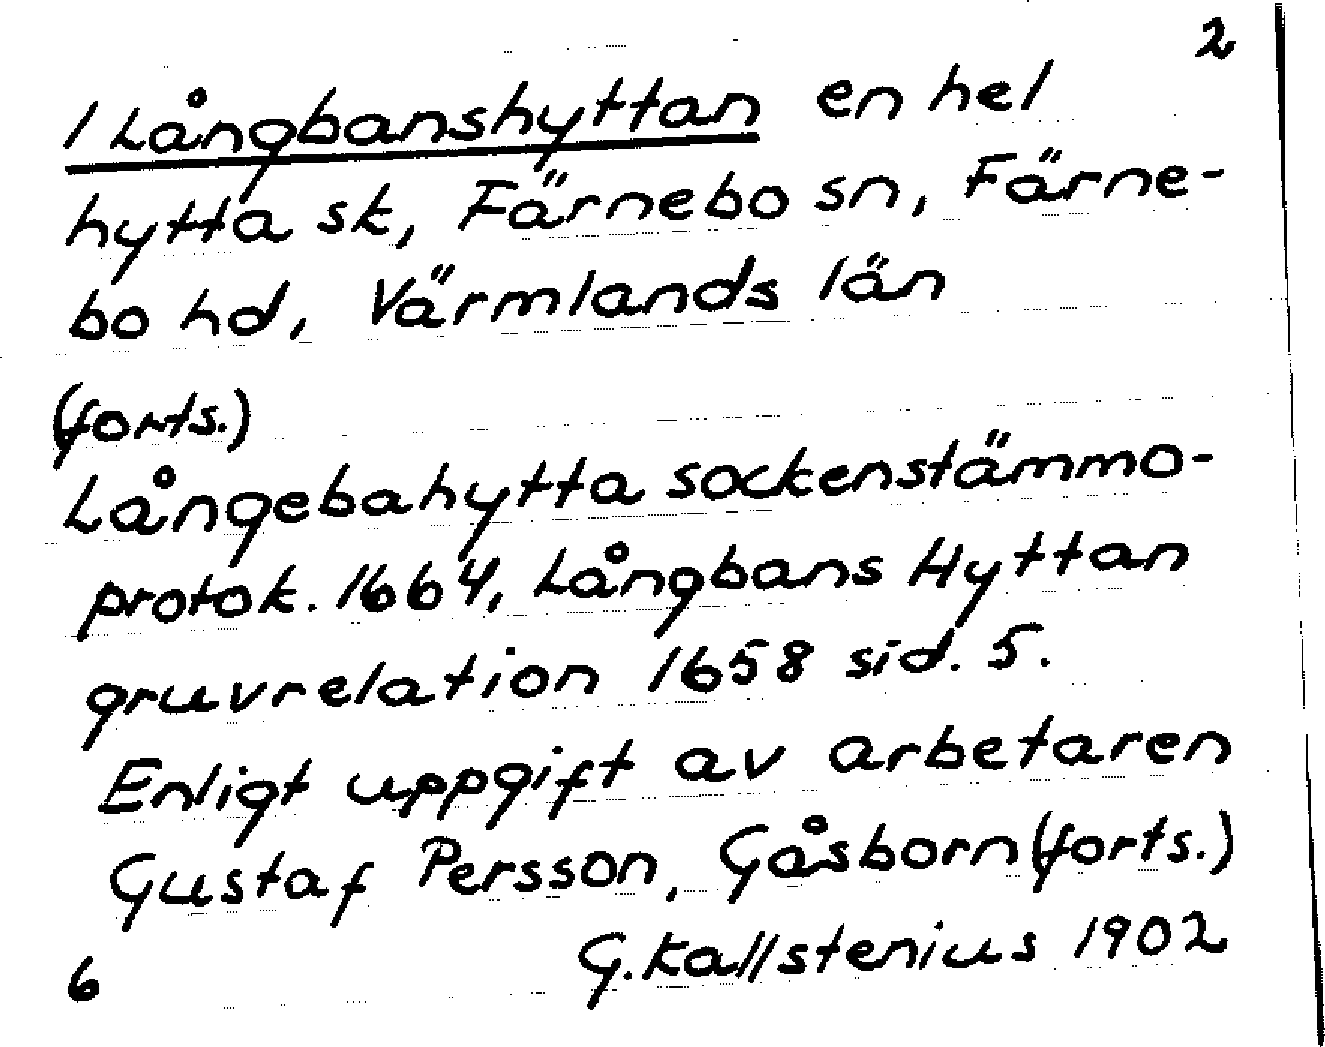 2
1 Långbanshyttan en hel
hytta sk, Färnebo sn, Färne-
bo hd, Värmlands län
(forts.)
Långebahytta sockenstämmo-
protok. 1664, Långbans Hyttan
gruvrelation 1658 sid. 5.
Enligt uppgift av arbetaren
Gustaf Persson, Gåsborn (forts.)
6 G. Kallstenius 1902